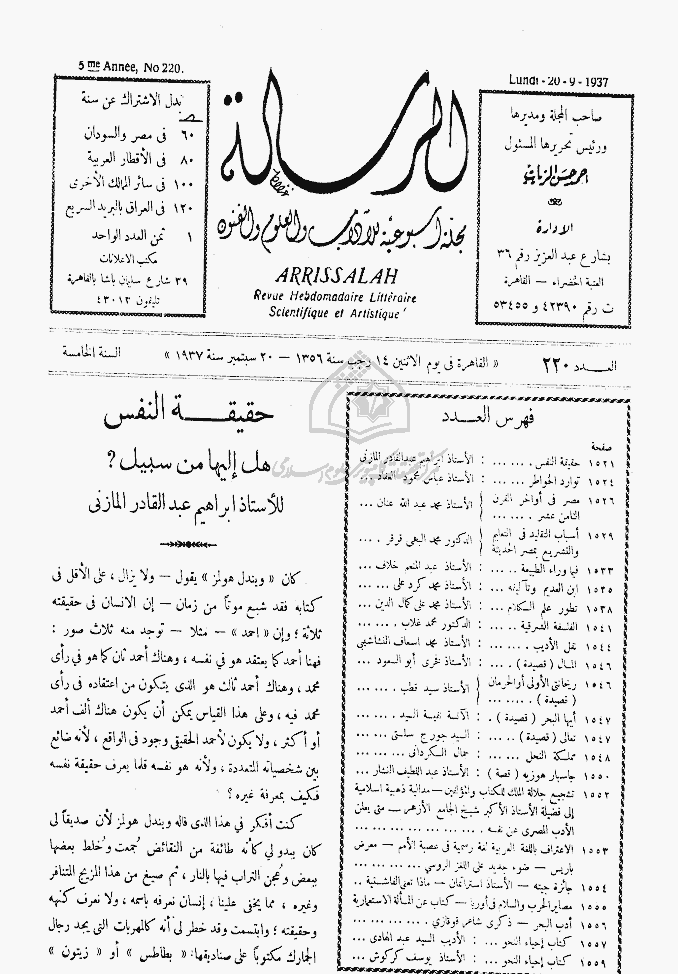 5me Année, No 220.
Lundi - 20 - 9 - 1937
بدل الاشتراك عن سنة
٦٠ فى مصر والسودان
٨٠ فى الأقطار العربية
١٠٠ فى سائر الممالك الأخرى
١٢٠ فى العراق بالبريد السريع
١ ثمن العدد الواحد
مكتب الاعلانات
٣٩ شارع سليمان باشا بالقاهرة
تليفون ٤٣٠١٣
الرسالة
مجلة أسبوعية للآداب والعلوم والفنون
ARRISSALAH
Revue Hebdomadaire Littéraire
Scientifique et Artistique
صاحب المجلة ومديرها
ورئيس تحريرها المسئول
احمد حسن الزيات
الادارة
بشارع عبد العزيز رقم ٣٦
العتبة الخضراء — القاهرة
ت رقم ٤٢٣٩٠ و ٥٣٤٥٥
العـدد ٢٢٠
« القاهرة فى يوم الاثنين ١٤ رجب سنة ١٣٥٦ — ٢٠ سبتمبر سنة ١٩٣٧ »
السنة الخامسة
فهرس العـدد
صفحة
١٥٢١ حقيقة النفس ... ... : الأستاذ ابراهيم عبدالقادر المازنى
١٥٢٤ توارد الخواطر ... ... : الأستاذ عباس محمود العقاد ...
١٥٢٦ مصر فى أواخر القرن الثامن عشر ... ... } الأستاذ محمد عبد الله عنان ...
١٥٢٩ أسباب التقليد فى التعليم والتشريع بمصر الحديثة } الدكتور محمد البهى قرقر ...
١٥٣٣ فيما وراء الطبيعة ... : الأستاذ عبد المنعم خلاف ...
١٥٣٥ ابن العديم ... : الأستاذ محمد كرد على ...
١٥٣٨ تطور علم السكلام ... : الأستاذ محمد على كمال الدين ...
١٥٤١ الفلسفة الشرقية ... : الدكتور محمد غلاب ...
١٥٤٤ نقل الأديب ... ... : الأستاذ محمد اسعاف النشاشيبى
١٥٤٦ المال ( قصيدة ) ... : الأستاذ فخرى أبو السعود ...
١٥٤٦ ريحانتى الأولى أو الحرمان ( قصيدة ) ... } الأستاذ سيد قطب ...
١٥٤٧ أيها البحر ( قصيدة ) . : الآنسة نفيسة السيد ...
١٥٤٧ تعالى ( قصيدة ) ... : السيد جورج سلستى ...
١٥٤٨ مملكة النحل ...
١٥٥٠ جاسبار هوزيه ( قصة ) : الأستاذ عبد اللطيف النشار ...
١٥٥٢ تشجيع جلالة الملك للكتاب والمؤلفين — مدالية ذهبية اسلامية
إلى فضيلة الأستاذ الأكبر شيخ الجامع الأزهر — متى يعلن
الأدب المصرى عن نفسه ...
١٥٥٣ الاعتراف باللغة العربية لغة رسمية فى عصبة الأمم — معرض
باريس — ضوء جديد على اللغز الروسى ...
١٥٥٤ جائزة جيته — الأستاذ — ماذا تعنى الفاشستية ..
١٥٥٥ مصاير الحرب والسلام فى أوربا — كتاب عن المسألة الاستعمارية
١٥٥٦ أدب البحر — ذكرى شاعر قوقازى ...
١٥٥٧ كتاب إحياء النحو ... : الأديب السيد عبد الهادى ...
١٥٥٩ كتاب إحياء النحو ... : الأستاذ يوسف كركوش ...
حقيقــة النفس
هل إليها من سبيل ؟
للأستاذ ابراهيم عبد القادر المازنى
كان « ويندل هولمز » يقول — ولا يزال ، على الأقل فى
كتابه فقد شبع موتاً من زمان — إن الانسان فى حقيقته
ثلاثة ؛ وإن « احمد » — مثلا — توجد منه ثلاث صور :
فهنا أحمد كما يعتقد هو فى نفسه ، وهناك أحمد ثان كما هو فى رأى
محمد ، وهناك أحمد ثالث هو الذى يتكون من اعتقاده فى رأى
محمد فيه ، وعلى هذا القياس يمكن أن يكون هناك ألف أحمد
أو أكثر ، ولا يكون لأحمد الحقيقى وجود فى الواقع ، لأنه ضائع
بين شخصياته المتعددة ، ولأنه هو نفسه قلما يعرف حقيقة نفسه
فكيف بمعرفة غيره ؟
كنت أفكر فى هذا الذى قاله ويندل هولمز لأن صديقاً لى
كان يبدو لى كأنه طائفة من النقائض جُمعت وخُلط بعضها
ببعض وعُجن التراب فيها بالنار ، ثم صيغ من هذا المزيج المتنافر
وغيره ، مما يخفى علينا ، إنسان نعرفه باسمه ، ولا نعرف كنهه
وحقيقته ؛ وابتسمت وقد خطر لى أنه كالمهربات التى يجد رجال
الجمارك مكتوباً على صناديقها : « بطاطس » أو « زيتون »